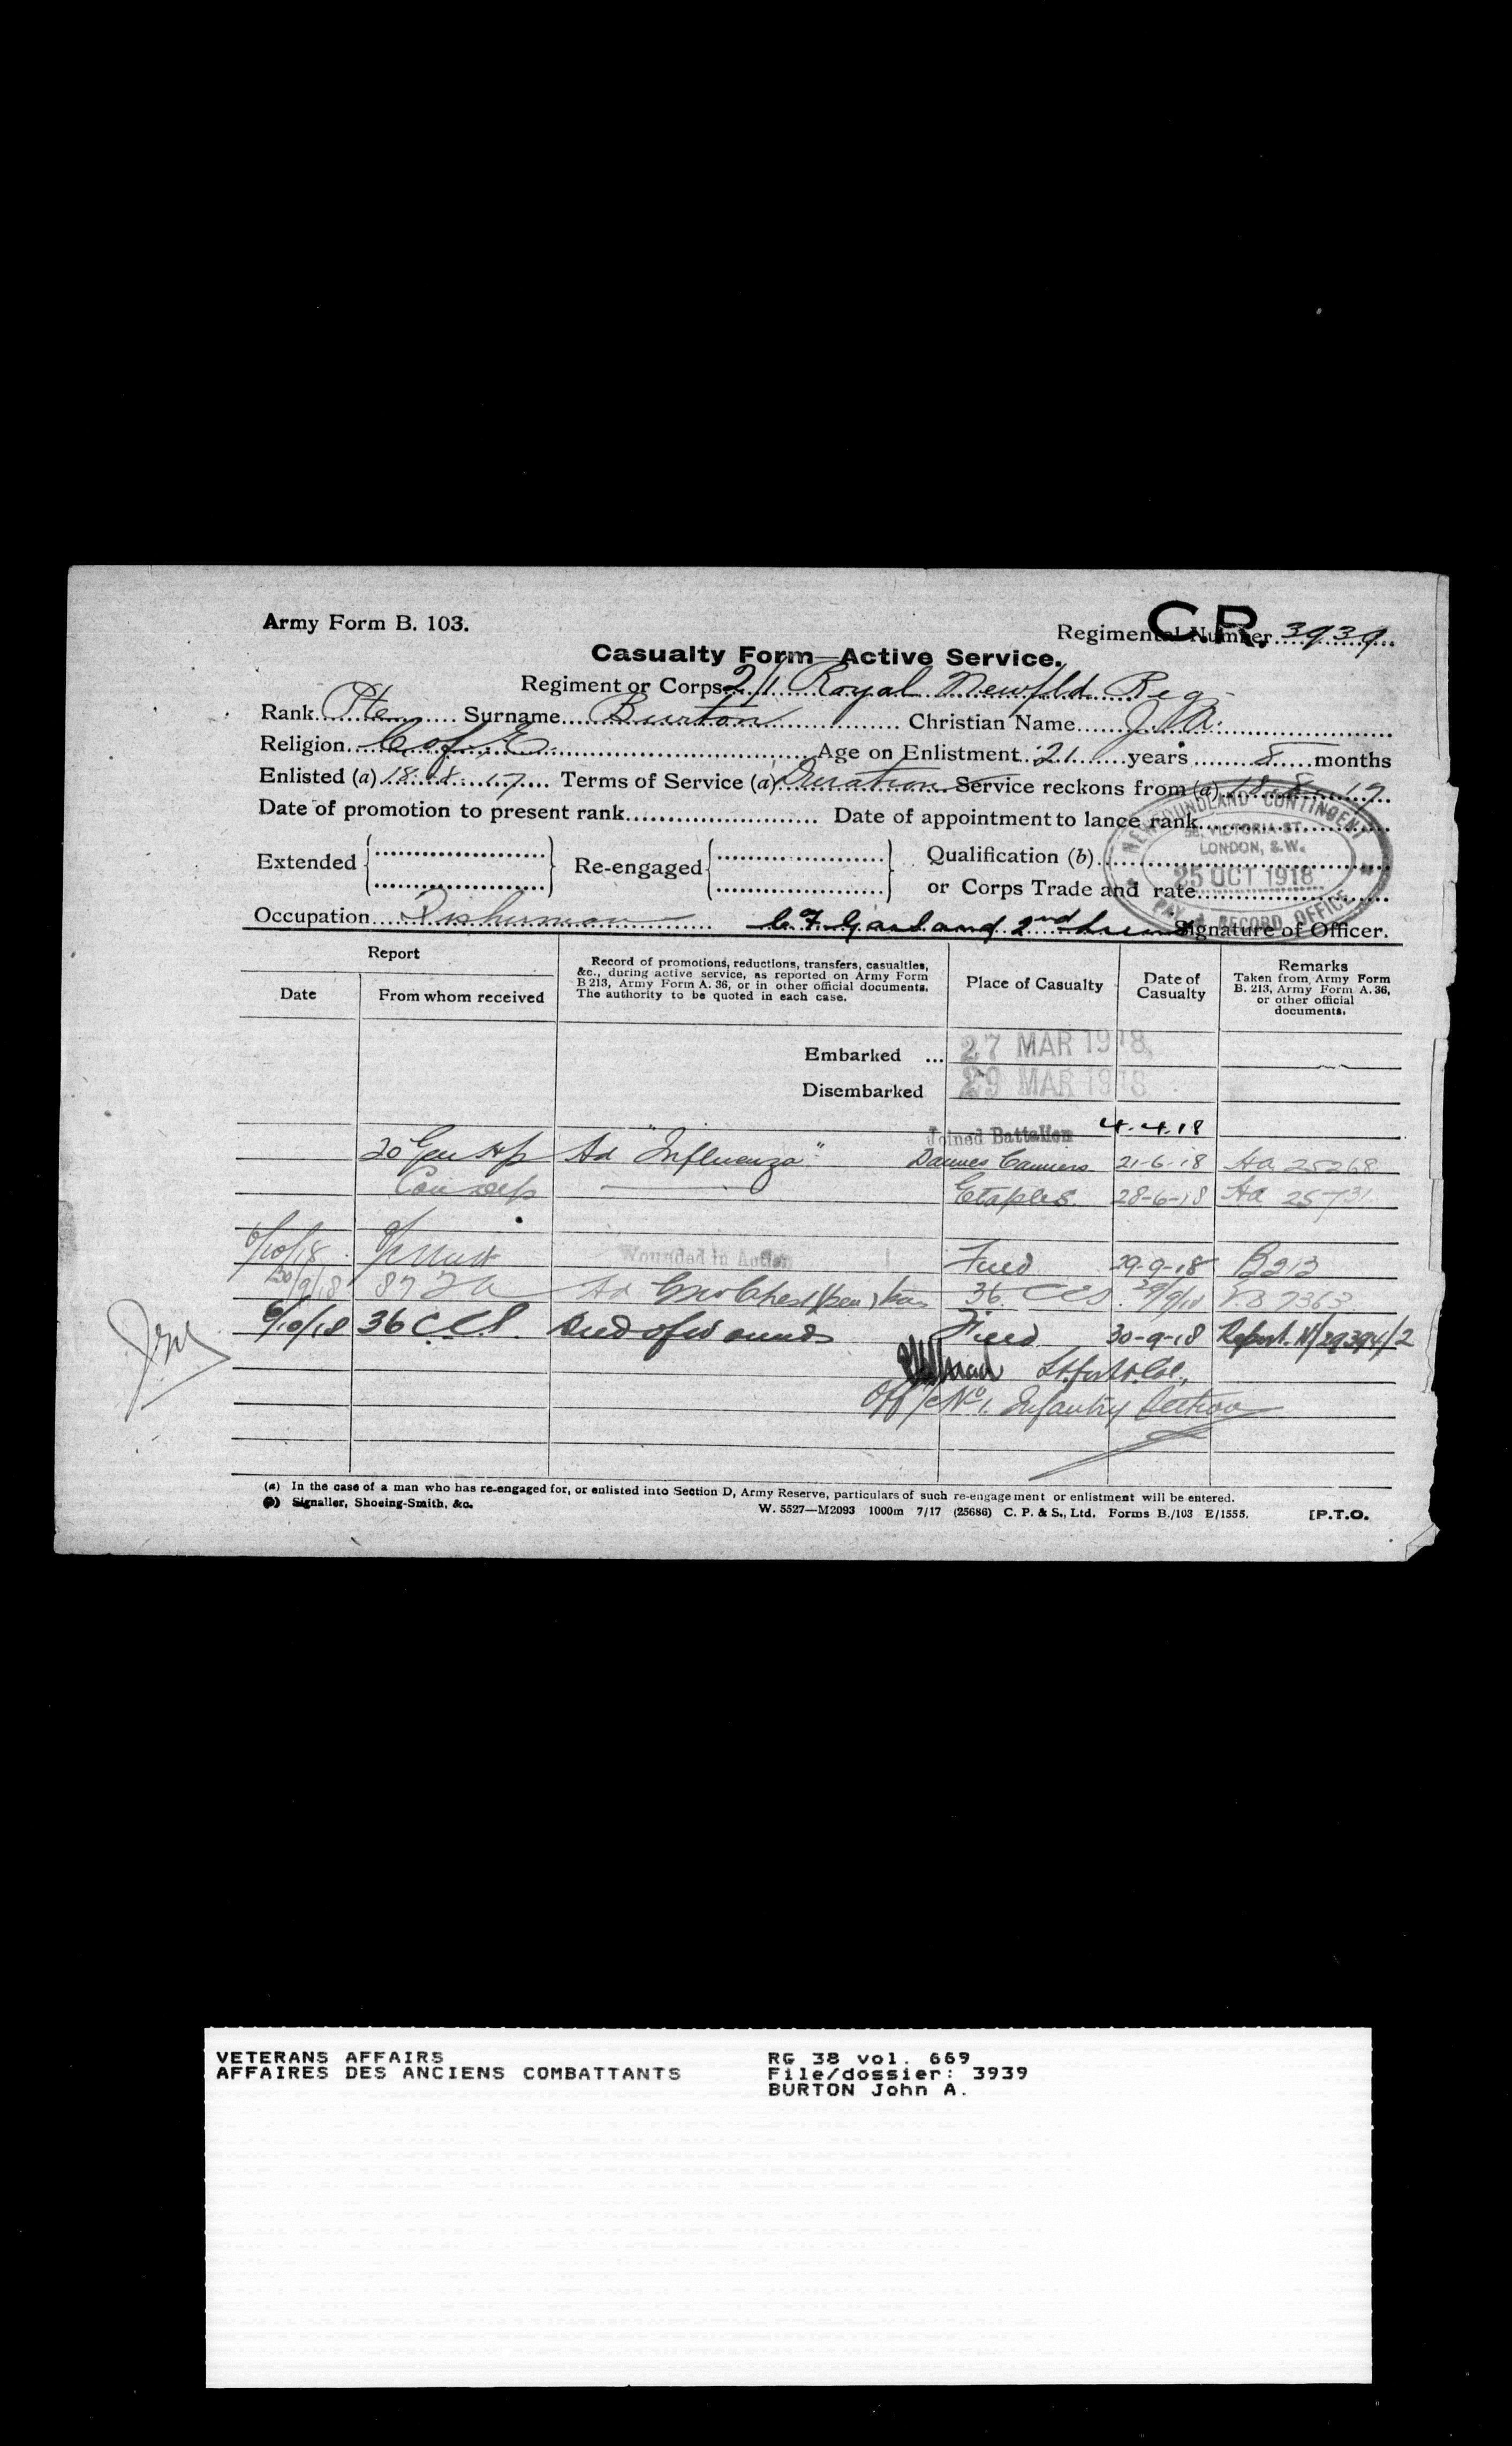 Army Form B. 103.
C.R.
Regimental Number 3939
Casualty Form—Active Service.
Regiment or Corps 2/1 Royal Newfld Reg
Rank Pte Surname Burton Christian Name J. A.
Religion C of E Age on Enlistment 21 years 8 months
Enlisted (a) 18.8.17 Terms of Service (a) Duration Service reckons from (a) 18.8.17
Date of promotion to present rank Date of appointment to lance rank
Extended Re-engaged Qualification (b)
or Corps Trade and rate
NEWFOUNDLAND CONTINGENT
58, VICTORIA ST.
LONDON, S.W.
25 OCT 1918
PAY & RECORD OFFICE
Occupation Fisherman C F Garland 2nd Lieut Signature of Officer.
Report
Date From whom received
Record of promotions, reductions, transfers, casualties,
&c., during active service, as reported on Army Form
B 213, Army Form A. 36, or in other official documents.
The authority to be quoted in each case.
Place of Casualty
Date of
Casualty
Remarks
Taken from Army Form
B. 213, Army Form A. 36,
or other official
documents.
Embarked ... 27 MAR 1918
Disembarked 29 MAR 1918
Joined Battalion 4.4.18
20 Gen Hp Ad "Influenza" Dannes Camiers 21-6-18 Ha 25268
Con Dep Etaples 28-6-18 Ha 25731
6/10/18 O/C Unit Wounded in Action Field 29-9-18 B213
30/9/18 87 FA Ad GSW Chest (Pen) 36 CCS 29/9/18 7363
6/10/18 36 C.C.S. Died of wounds Field 30-9-18 Report. N/29394/2
Lt. for Lt. Col.,
Off i/c No 1. Infantry Section
(a) In the case of a man who has re-engaged for, or enlisted into Section D, Army Reserve, particulars of such re-engagement or enlistment will be entered.
(b) Signaller, Shoeing-Smith, &c.
W. 5527—M2093 1000m 7/17 (25686) C. P. & S., Ltd. Forms B./103 E/1555.
[P.T.O.
VETERANS AFFAIRS
AFFAIRES DES ANCIENS COMBATTANTS
RG 38 vol. 669
File/dossier: 3939
BURTON John A.